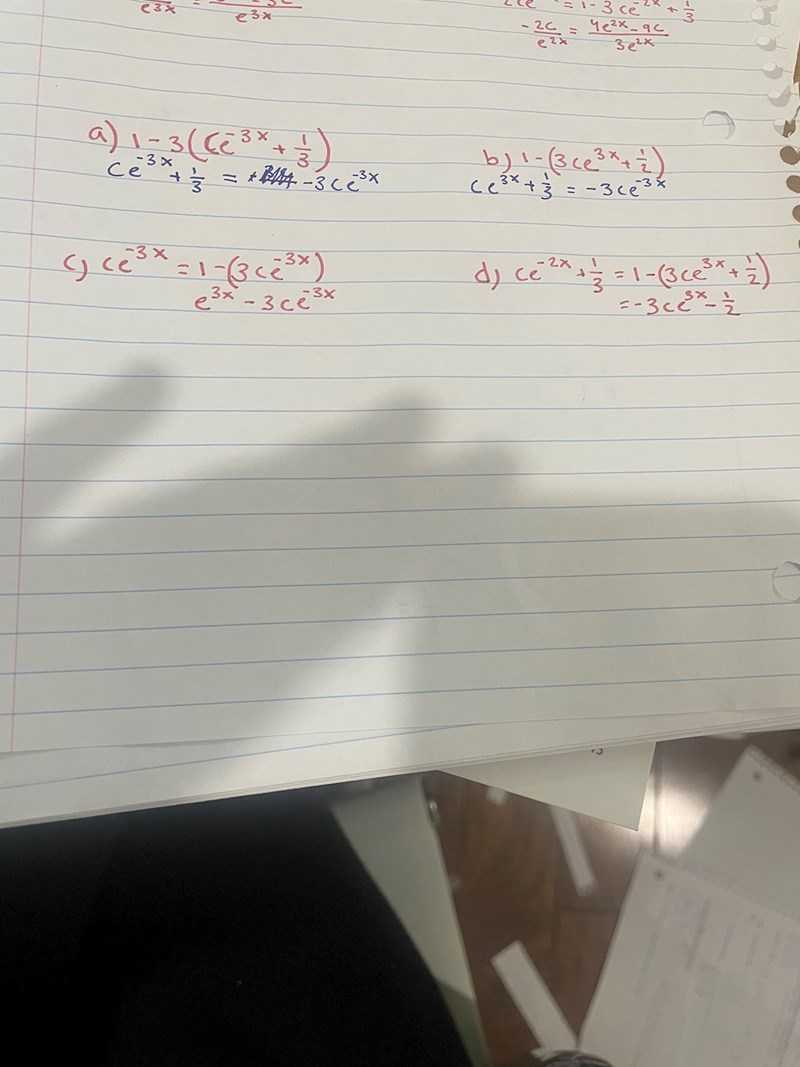 e^3x = e^3x
= 1 - 3ce^-2x + 1/3
-2c/e^2x = 4e^2x - 9c/3e^2x
a) 1 - 3(Ce^-3x + 1/3)
Ce^-3x + 1/3 = -3Ce^-3x
b) 1 - (3ce^3x + 1/2)
Ce^3x + 1/3 = -3ce^-3x
c) Ce^-3x = 1 - (3ce^-3x)
e^3x - 3ce^-3x
d) Ce^-2x + 1/3 = 1 - (3ce^3x + 1/2)
= -3ce^3x - 1/2